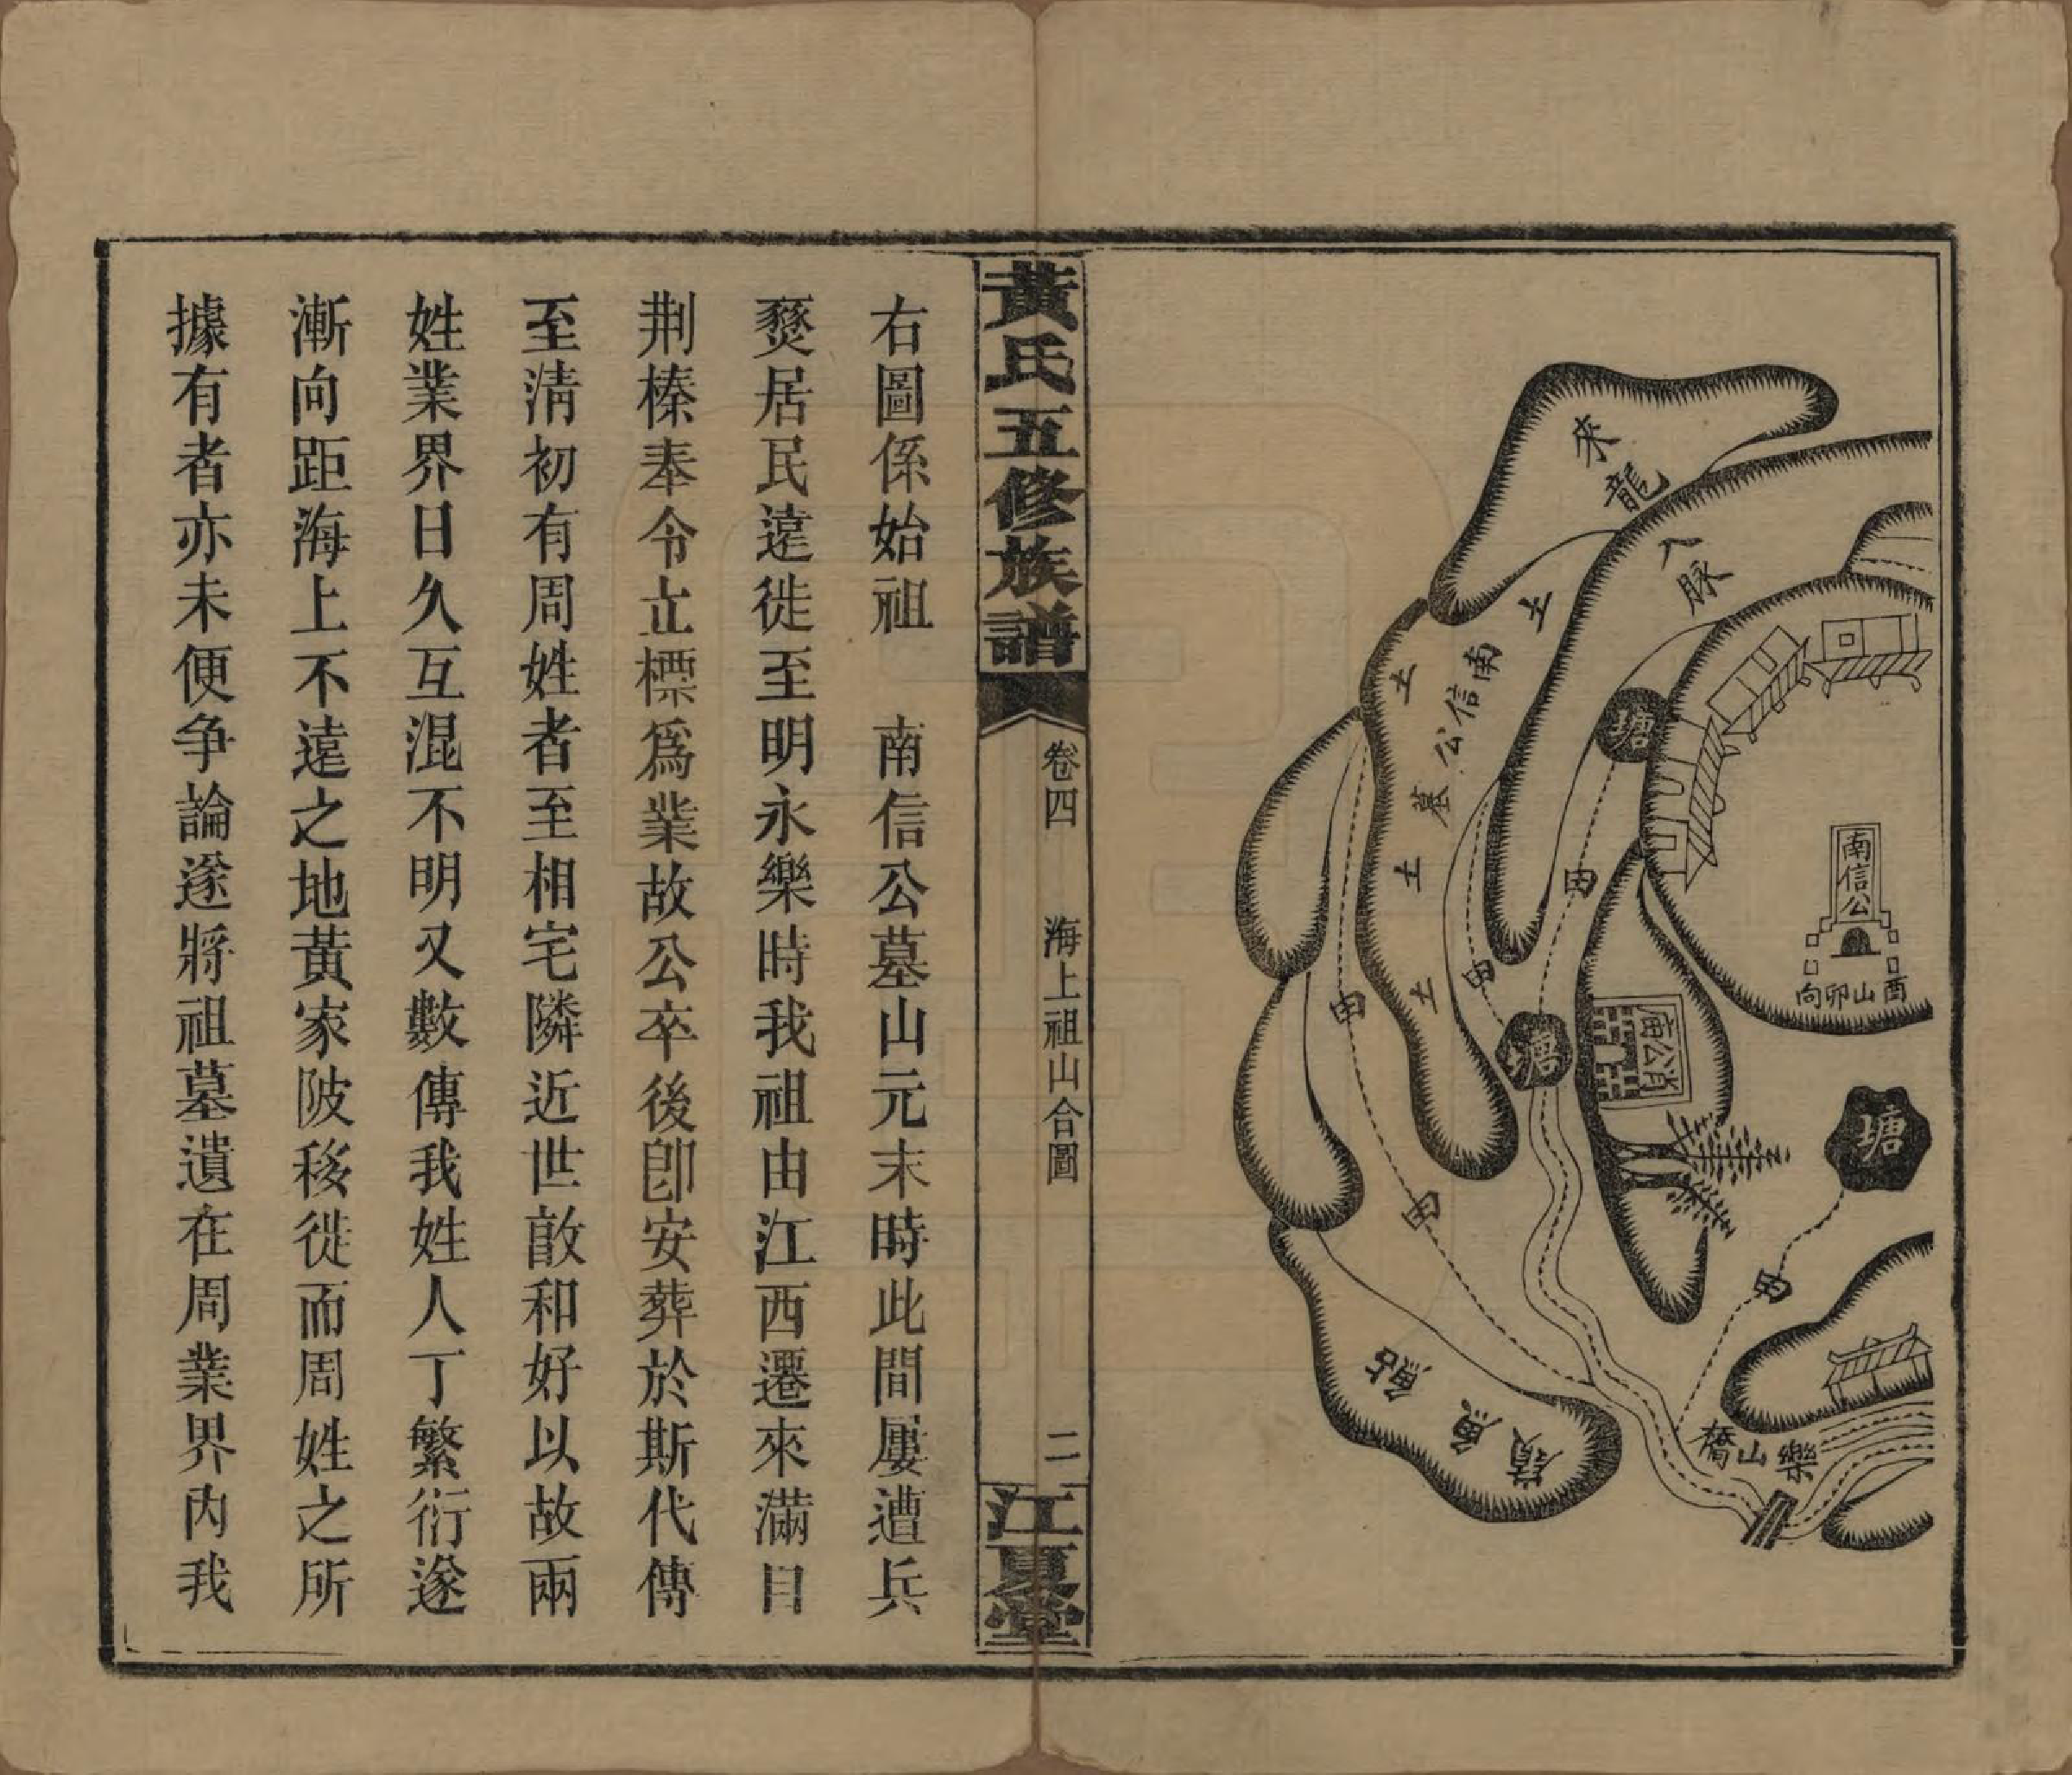 來龍
入脉
土
土
南信公墓
土
土
塘
田
田
田
塘
田
南信公
酉山卯向
肖公庙
塘
田
鮎魚嶺
樂山橋
黃氏五修族譜
卷四
海上祖山合圖
二
江夏堂
右圖係始祖 南信公墓山元末時此間屢遭兵
燹居民遠徙至明永樂時我祖由江西遷來滿目
荆榛奉令立標爲業故公卒後卽安葬於斯代傳
至淸初有周姓者至相宅隣近世敃和好以故兩
姓業界日久互混不明又數傳我姓人丁繁衍遂
漸向距海上不遠之地黃家陂移徙而周姓之所
據有者亦未便争論遂將祖墓遺在周業界內我